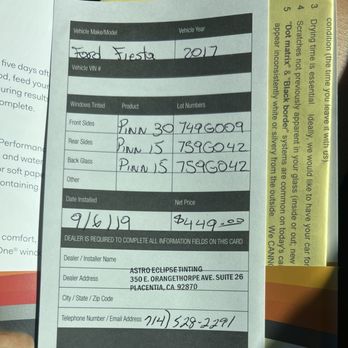 Vehicle Make/Model
Vehicle Year
Ford Fiesta
2017
Vehicle VIN #
Windows Tinted Product Lot Numbers
Front Sides PINN 30 749G009
Rear Sides PINN 15 759G042
Back Glass PINN 15 759G042
Other
Date Installed Net Price
9/6/19 $449.00
DEALER IS REQUIRED TO COMPLETE ALL INFORMATION FIELDS ON THIS CARD
Dealer / Installer Name
ASTRO ECLIPSE TINTING
Dealer Address
350 E. ORANGETHORPE AVE. SUITE 26
PLACENTIA, CA. 92870
City / State / Zip Code
Telephone Number / Email Address 714) 528-2291
five days aft
od, feed your
uring result
omplete.
Performan
and water
r soft pape
ontaining
comfort,
One® wind
condition (the time you leave it with us)
3 Drying time is essential. Ideally, we would like to have your car for
4 Scratches not previously apparent in your glass (inside or out, new
5 "Dot matrix" & "Black border" systems are common on today's ca
appear inconsistently white or silvery from the outside. We CANN